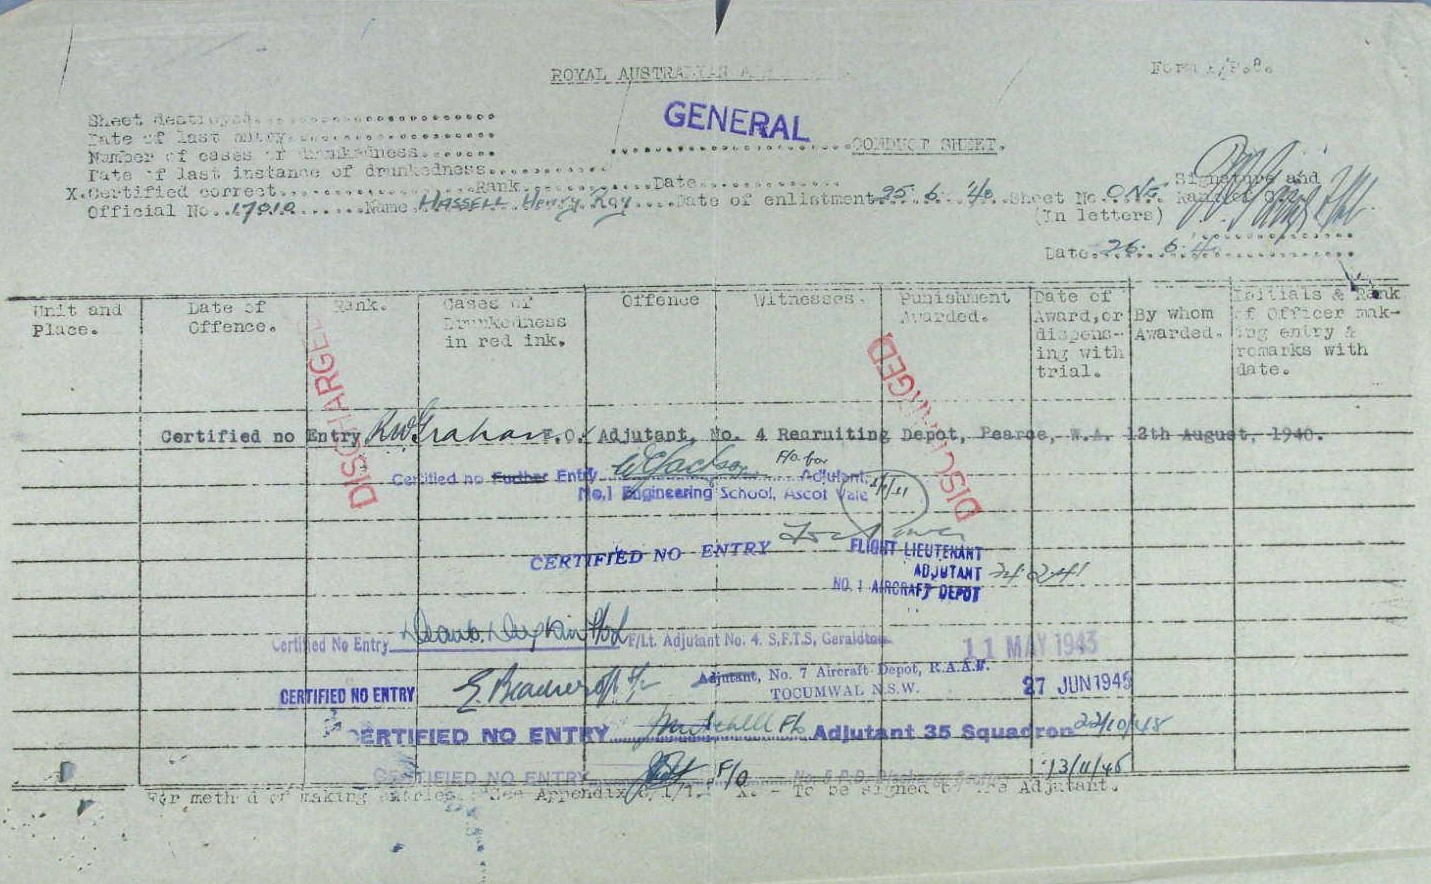 ROYAL AUSTRALIAN A
Form P/P.8.
GENERAL
CONDUCT SHEET.
Sheet destroyed
Date of last entry
Number of cases of drunkedness
Date of last instance of drunkedness
X.Certified correct Rank Date
Signature and
Official No. 17010 Name HASSELL Henry Roy Date of enlistment 25.6.40 Sheet No. ONE
(In letters)
Date 26.6.40
Unit and Place.
Date of Offence.
Rank.
Cases of Drunkedness in red ink.
Offence
Witnesses.
Punishment Awarded.
Date of Award,or dispens-ing with trial.
By whom Awarded.
Initials & Rank of Officer mak-ing entry & remarks with date.
DISCHARGED
DISCHARGED
Certified no Entry RW Graham F.O. Adjutant, No. 4 Recruiting Depot, Pearce, W.A. 12th August, 1940.
Certified no Further Entry Jackson F/O for Adjutant,
No.1 Engineering School, Ascot Vale
CERTIFIED NO ENTRY FLIGHT LIEUTENANT
ADJUTANT
NO. 1 AIRCRAFT DEPOT
Certified No Entry F/Lt. Adjutant No. 4. S.F.T.S, Geraldton 11 MAY 1943
Adjutant, No. 7 Aircraft Depot, R.A.A.F.
CERTIFIED NO ENTRY TOCUMWAL N.S.W. 27 JUN 1945
CERTIFIED NO ENTRY F/O Adjutant 35 Squadron 22/10/45
CERTIFIED NO ENTRY F/O 13/11/45
For method of making entries. See Appendix X. - To be signed by the Adjutant.